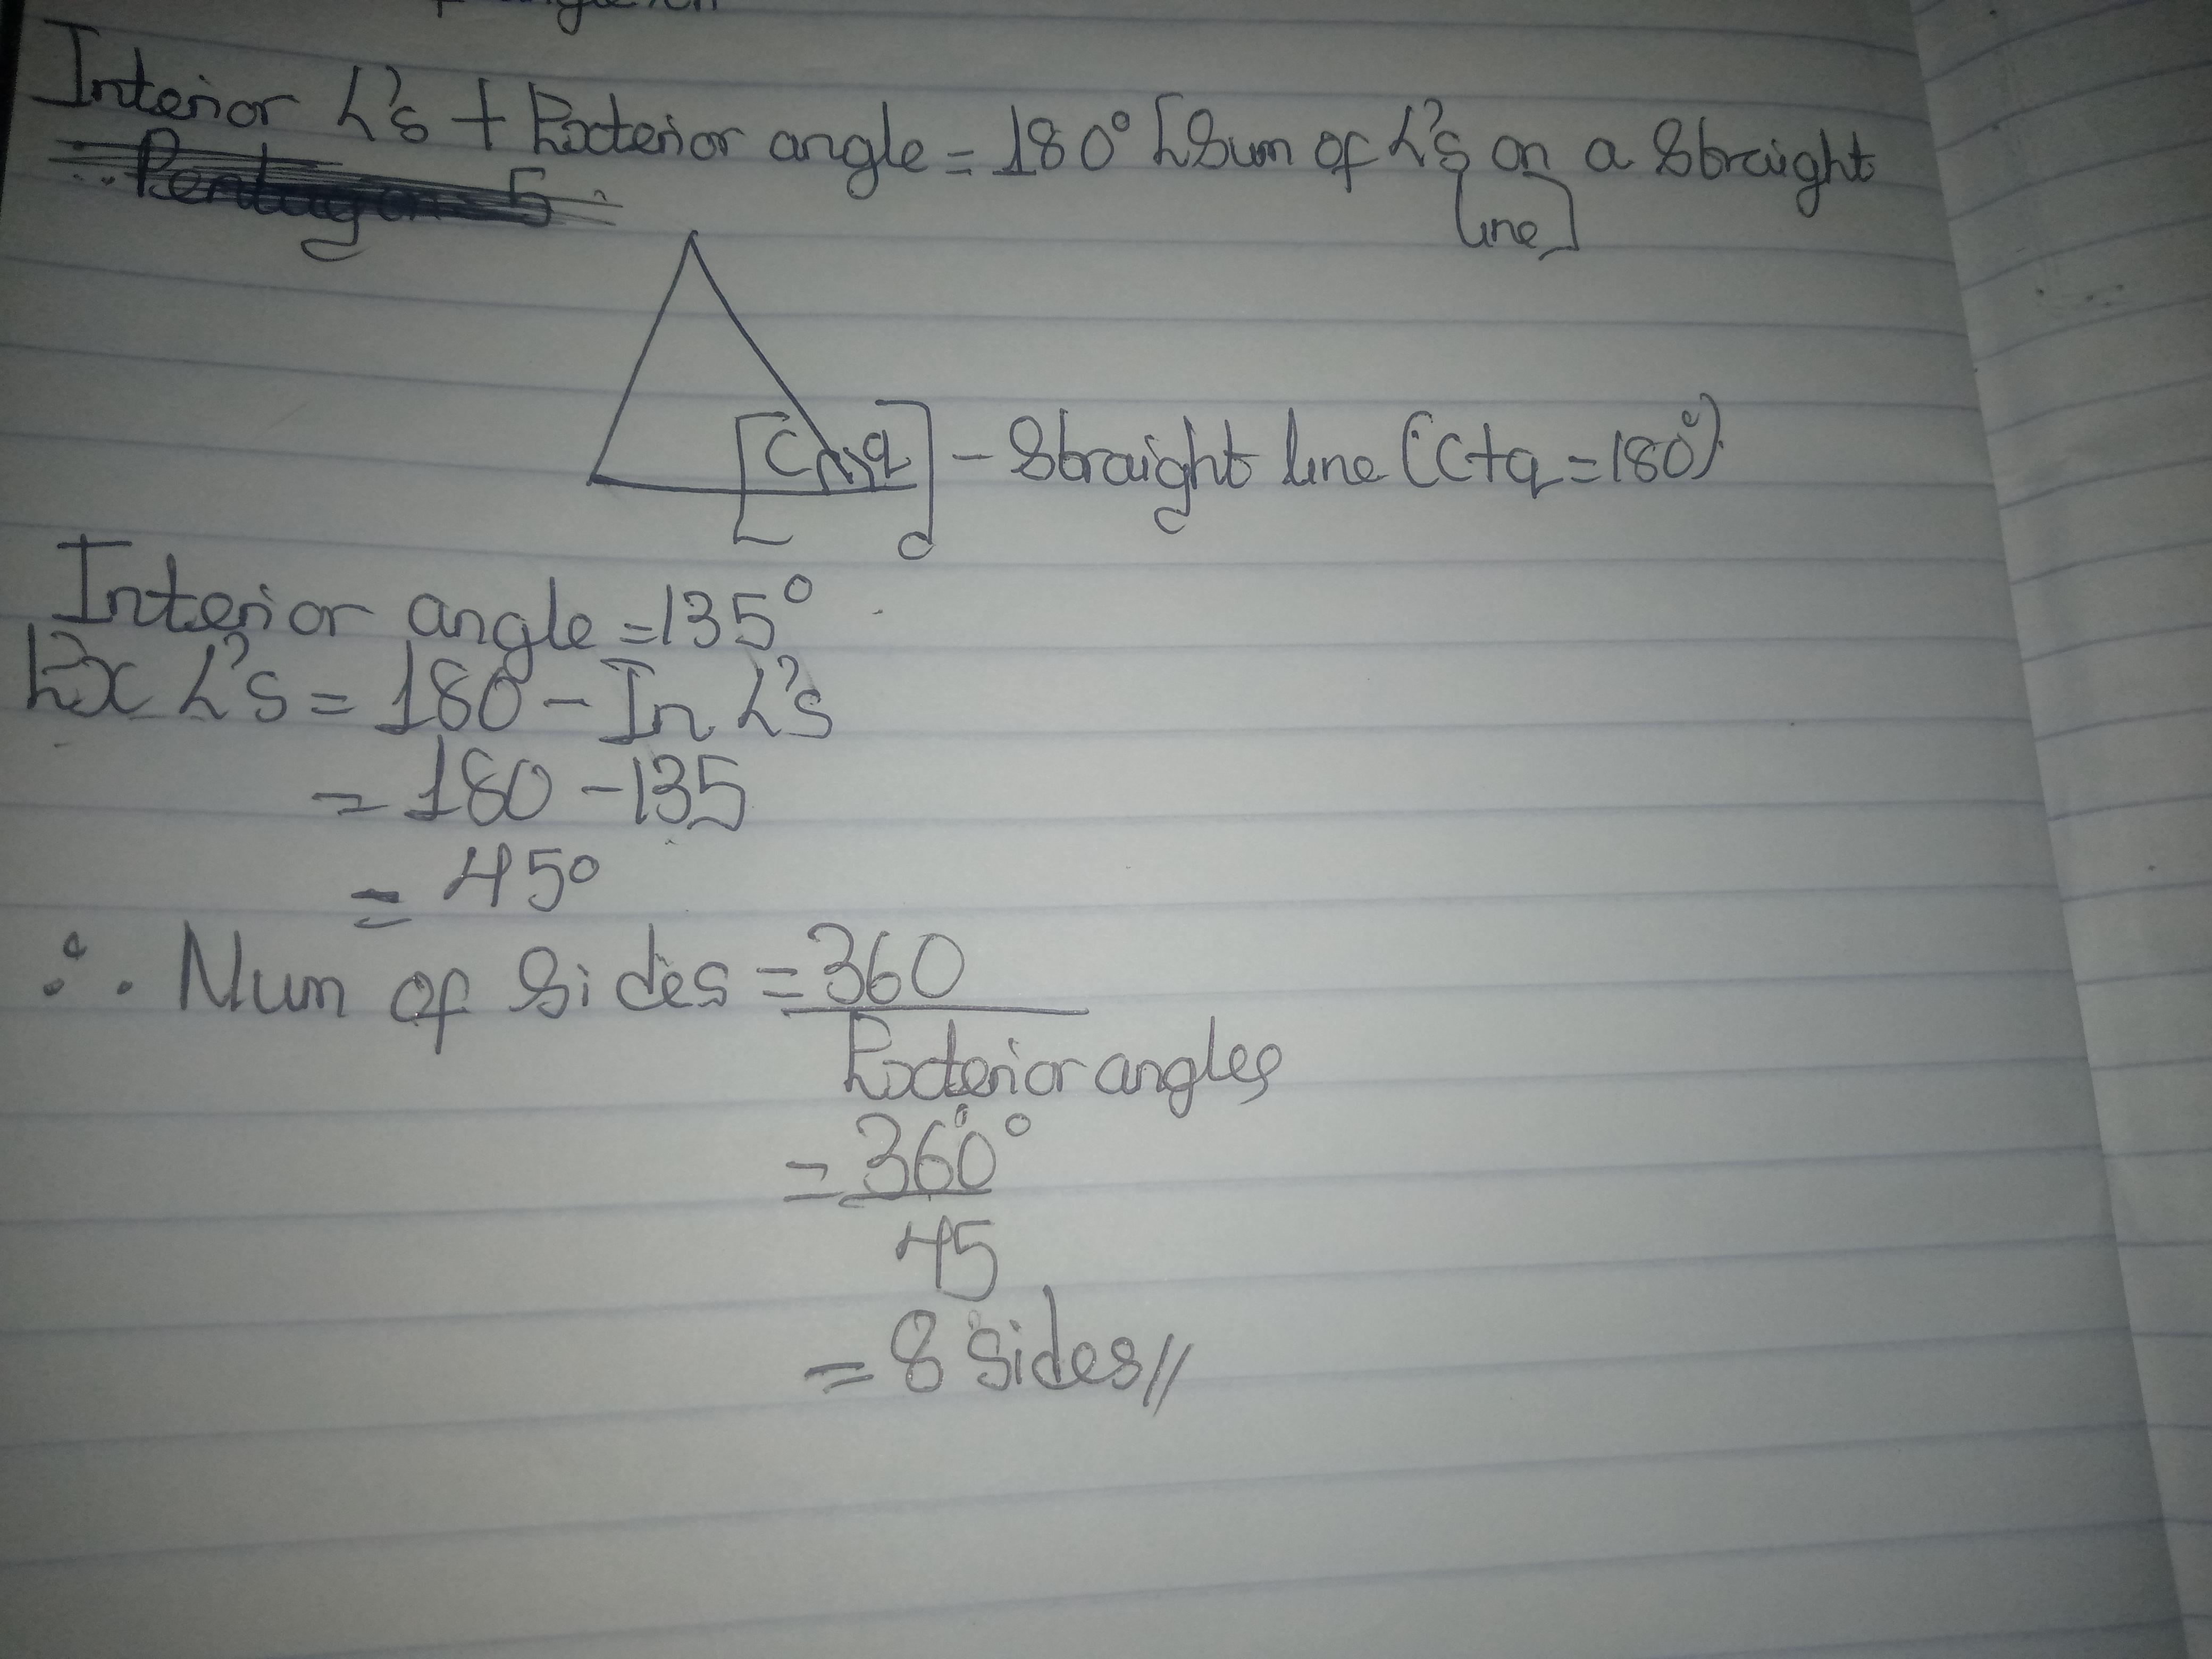 Interior L's + Exterior angle = 180° [Sum of L's on a Straight
line]
∴ Pentagon = 5
[C q] – Straight line (C+q = 180°)
Interior angle = 135°
Ex L's = 180 – In L's
= 180 – 135
= 45°
∴ Num of Sides = 360
Exterior angles
= 360°
45
= 8 Sides//